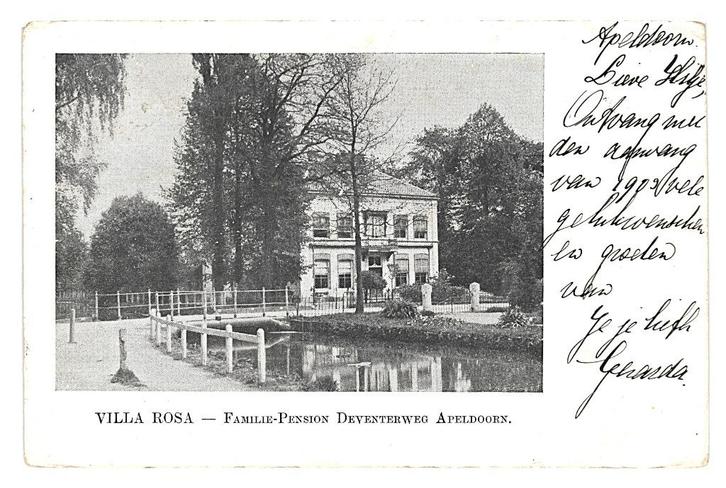 Apeldoorn.
Lieve
Ontvang met
den aanvang
van 1903 vele
gelukwenschen
en groeten
van
Je je liefh
Gerarda.
VILLA ROSA — FAMILIE-PENSION DEVENTERWEG APELDOORN.